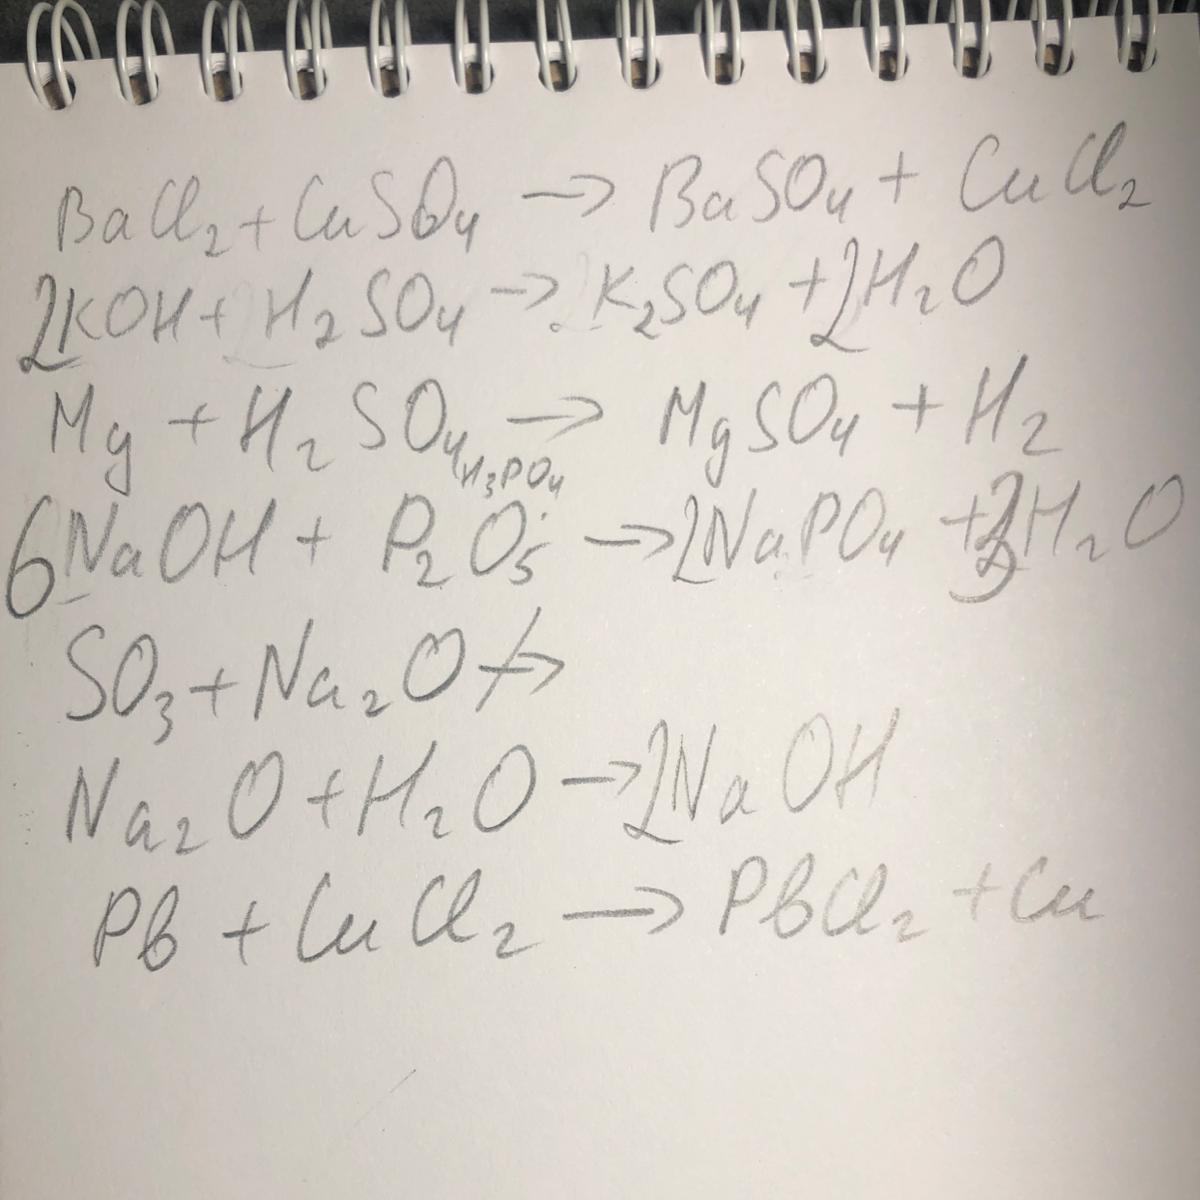 BaCl₂ + CuSO₄ → BaSO₄ + CuCl₂
2KOH + H₂SO₄ → K₂SO₄ + 2H₂O
Mg + H₂SO₄ → MgSO₄ + H₂
H₃PO₄
6NaOH + P₂O₅ → 2NaPO₄ + 3H₂O
SO₃ + Na₂O ↛
Na₂O + H₂O → 2NaOH
Pb + CuCl₂ → PbCl₂ + Cu